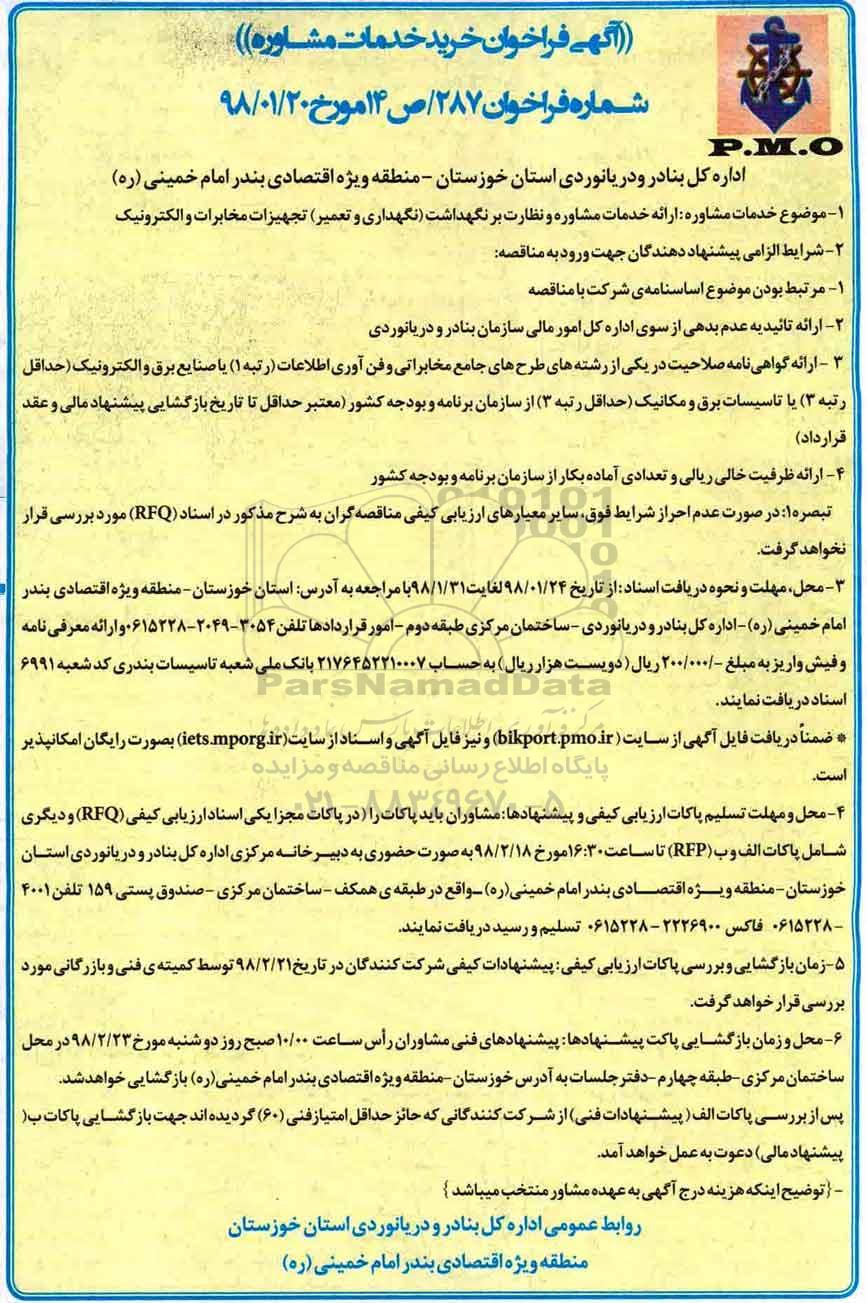 ((آگهی فراخوان خرید خدمات مشاوره))
شماره فراخوان ۲۸۷/ص۱۴ مورخ ۹۸/۰۱/۲۰
P.M.O
اداره کل بنادر و دریانوردی استان خوزستان - منطقه ویژه اقتصادی بندر امام خمینی (ره)
۱- موضوع خدمات مشاوره: ارائه خدمات مشاوره و نظارت بر نگهداشت (نگهداری و تعمیر) تجهیزات مخابرات و الکترونیک
۲- شرایط الزامی پیشنهاد دهندگان جهت ورود به مناقصه:
۱- مرتبط بودن موضوع اساسنامه‌ی شرکت با مناقصه
۲- ارائه تائیدیه عدم بدهی از سوی اداره کل امور مالی سازمان بنادر و دریانوردی
۳- ارائه گواهی‌نامه صلاحیت در یکی از رشته های طرح های جامع مخابراتی و فن آوری اطلاعات (رتبه ۱) یا صنایع برق و الکترونیک (حداقل
رتبه ۳) یا تاسیسات برق و مکانیک (حداقل رتبه ۳) از سازمان برنامه و بودجه کشور (معتبر حداقل تا تاریخ بازگشایی پیشنهاد مالی و عقد
قرارداد)
۴- ارائه ظرفیت خالی ریالی و تعدادی آماده بکار از سازمان برنامه و بودجه کشور
تبصره۱: در صورت عدم احراز شرایط فوق، سایر معیارهای ارزیابی کیفی مناقصه‌گران به شرح مذکور در اسناد (RFQ) مورد بررسی قرار
نخواهد گرفت.
۳- محل، مهلت و نحوه دریافت اسناد: از تاریخ ۹۸/۰۱/۲۴ لغایت ۹۸/۱/۳۱ با مراجعه به آدرس: استان خوزستان - منطقه ویژه اقتصادی بندر
امام خمینی (ره) - اداره کل بنادر و دریانوردی - ساختمان مرکزی طبقه دوم - امور قراردادها تلفن ۳۰۵۴-۲۰۴۹-۰۶۱۵۲۲۸ و ارائه معرفی نامه
و فیش واریز به مبلغ -/۲۰۰/۰۰۰ ریال (دویست هزار ریال) به حساب ۲۱۷۶۴۵۲۲۱۰۰۰۷ بانک ملی شعبه تاسیسات بندری کد شعبه ۶۹۹۱
اسناد دریافت نمایند.
* ضمناً دریافت فایل آگهی از سایت (bikport.pmo.ir) و نیز فایل آگهی و اسناد از سایت (iets.mporg.ir) بصورت رایگان امکانپذیر
است.
۴- محل و مهلت تسلیم پاکات ارزیابی کیفی و پیشنهادها: مشاوران باید پاکات را (در پاکات مجزا یکی اسناد ارزیابی کیفی (RFQ) و دیگری
شامل پاکات الف و ب (RFP) تا ساعت ۱۶:۳۰ مورخ ۹۸/۲/۱۸ به صورت حضوری به دبیرخانه مرکزی اداره کل بنادر و دریانوردی استان
خوزستان - منطقه ویژه اقتصادی بندر امام خمینی (ره) - واقع در طبقه ی همکف - ساختمان مرکزی - صندوق پستی ۱۵۹ تلفن ۴۰۰۱
-۰۶۱۵۲۲۸ فاکس ۲۲۲۶۹۰۰-۰۶۱۵۲۲۸ تسلیم و رسید دریافت نمایند.
۵- زمان بازگشایی و بررسی پاکات ارزیابی کیفی: پیشنهادات کیفی شرکت کنندگان در تاریخ ۹۸/۲/۲۱ توسط کمیته ی فنی و بازرگانی مورد
بررسی قرار خواهد گرفت.
۶- محل و زمان بازگشایی پاکت پیشنهادها: پیشنهادهای فنی مشاوران رأس ساعت ۱۰/۰۰ صبح روز دوشنبه مورخ ۹۸/۲/۲۳ در محل
ساختمان مرکزی - طبقه چهارم - دفتر جلسات به آدرس خوزستان - منطقه ویژه اقتصادی بندر امام خمینی (ره) بازگشایی خواهد شد.
پس از بررسی پاکات الف (پیشنهادات فنی) از شرکت کنندگانی که حائز حداقل امتیاز فنی (۶۰) گردیده اند جهت بازگشایی پاکات ب(
پیشنهاد مالی) دعوت به عمل خواهد آمد.
- {توضیح اینکه هزینه درج آگهی به عهده مشاور منتخب میباشد}
روابط عمومی اداره کل بنادر و دریانوردی استان خوزستان
منطقه ویژه اقتصادی بندر امام خمینی (ره)
ParsNamadData
پایگاه اطلاع رسانی مناقصه و مزایده
۰۲۱-۸۸۳۴۹۶۷۰-۵